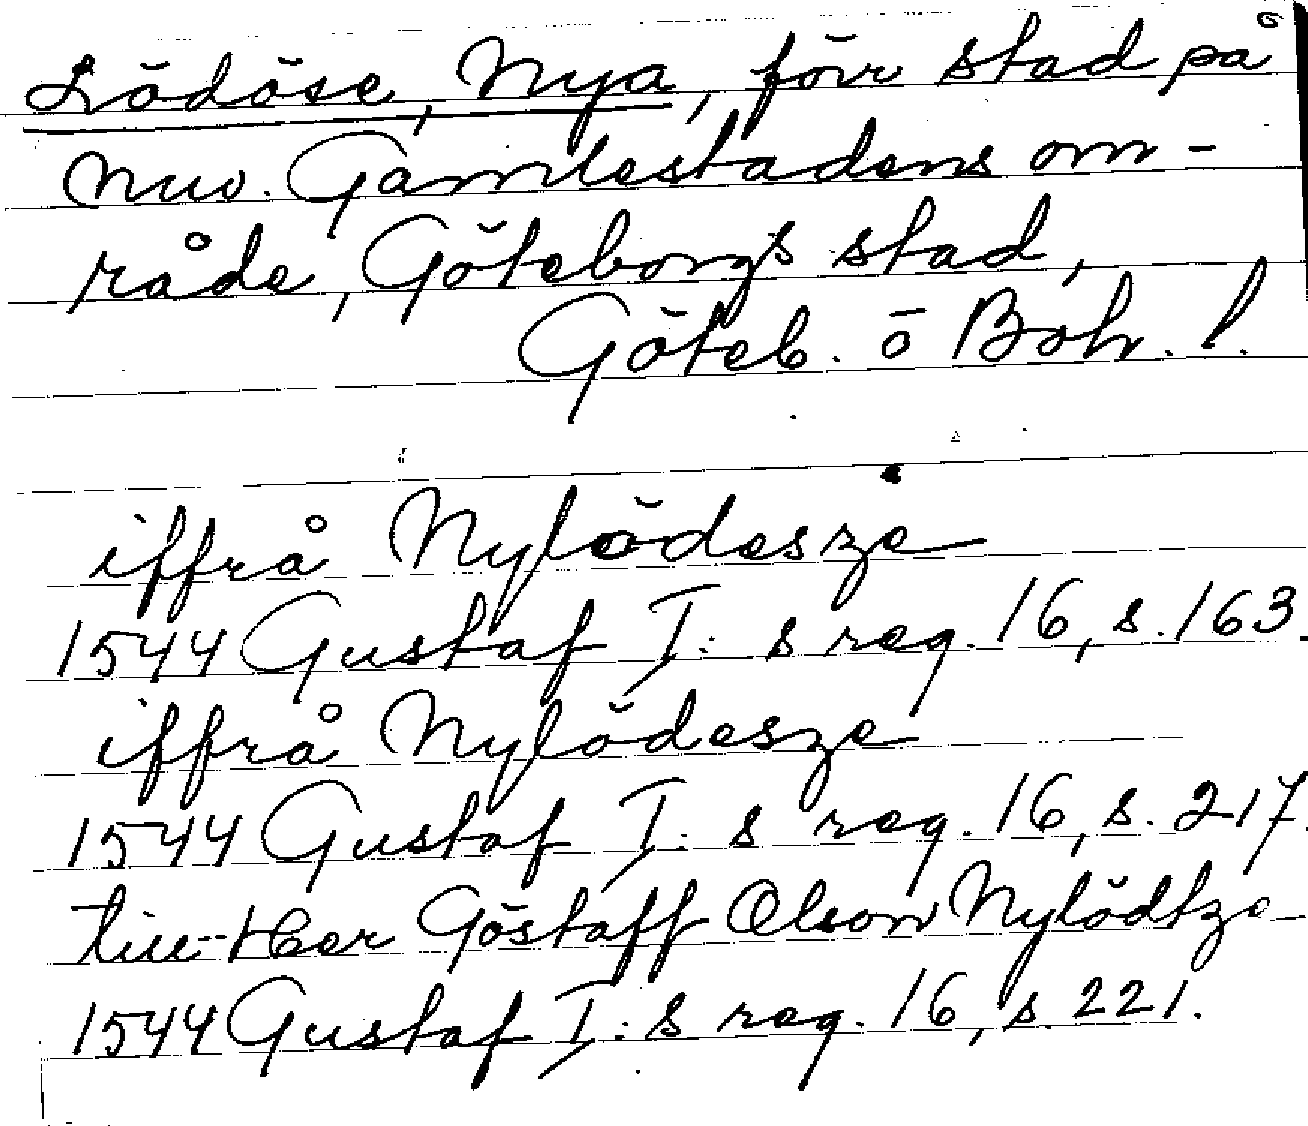 Lödöse, Nya, förr stad på
nuv. Gamlestadens om-
råde, Göteborgs stad,
Göteb. o Boh. l.
iffrå Nylödesze
1544 Gustaf I:s reg. 16, s. 163.
iffrå Nylödesze
1544 Gustaf I:s reg. 16, s. 217.
till Her Göstaff Olson Nylödtze
1544 Gustaf I:s reg. 16, s. 221.